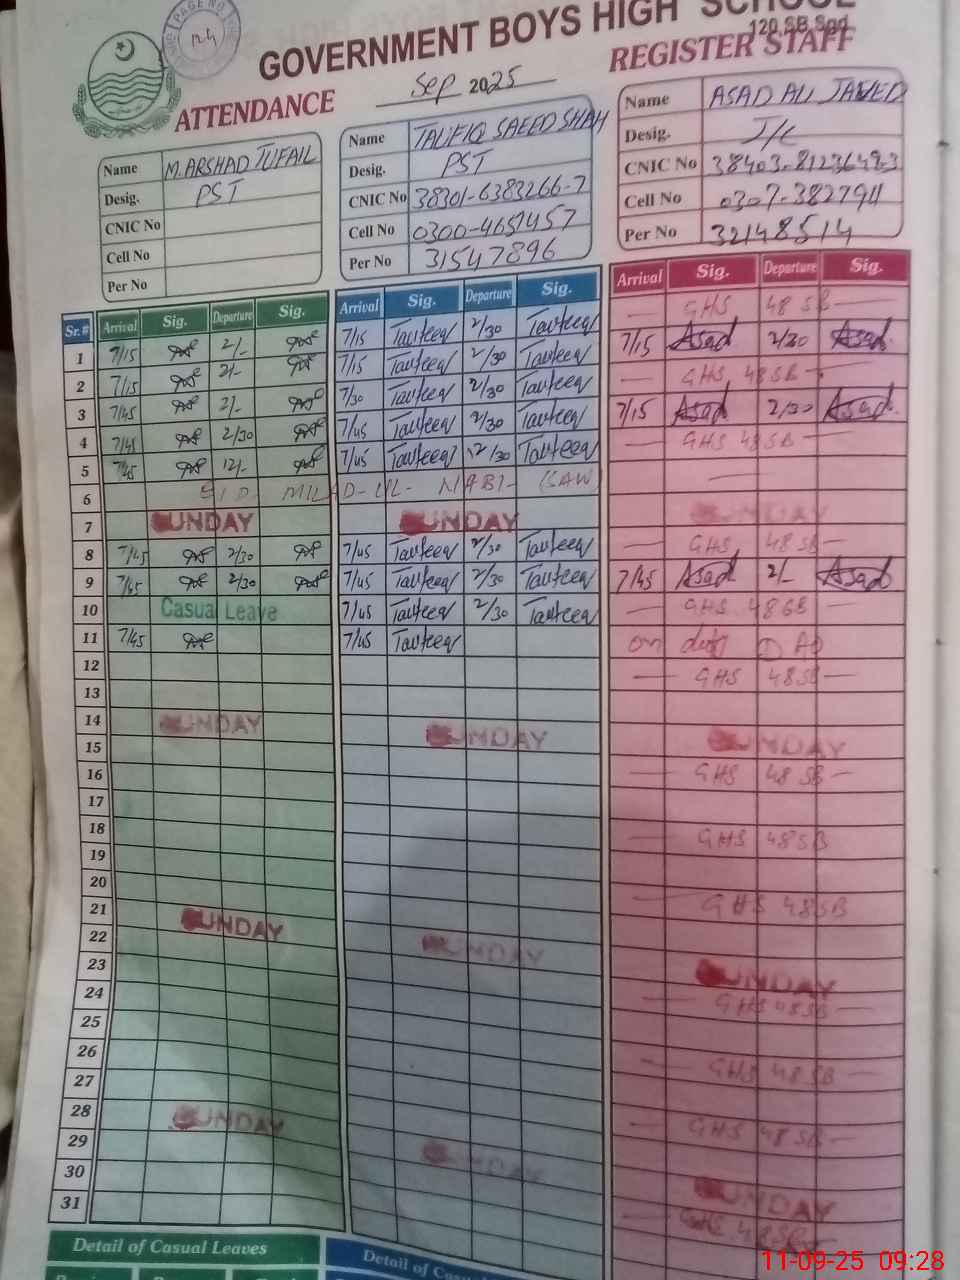 PAGE NO
GOVERNMENT BOYS HIGH SCHOOL
120 SB Sgd
ATTENDANCE Sep 2025 REGISTER STAFF
Name M. ARSHAD TUFAIL
Desig. PST
CNIC No
Cell No
Per No
Name TAUFIQ SAEED SHAH
Desig. PST
CNIC No 38301-6383266-7
Cell No 0300-4651457
Per No 31547896
Name ASAD ALI JAVED
Desig. I/C
CNIC No 38403-8123649-3
Cell No 0307-3827911
Per No 32148514
Sr.# Arrival Sig. Departure Sig. Arrival Sig. Departure Sig. Arrival Sig. Departure Sig.
GHS 48 SB
1 7/15 2/- 7/15 Taufeeq 2/30 Taufeeq 7/15 Asad 2/30 Asad
2 7/15 2/- 7/15 Taufeeq 2/30 Taufeeq GHS 48 SB
3 7/45 2/- 7/30 Taufeeq 2/30 Taufeeq 7/15 Asad 2/30 Asad
4 7/45 2/30 7/45 Taufeeq 2/30 Taufeeq GHS 48 SB
5 7/45 12/- 7/45 Taufeeq 12/30 Taufeeq
6 EID MILAD-UL-NABI (SAW)
7 SUNDAY SUNDAY SUNDAY
8 7/45 2/30 7/45 Taufeeq 2/30 Taufeeq GHS 48 SB
9 7/45 2/30 7/45 Taufeeq 2/30 Taufeeq 7/45 Asad 2/- Asad
10 Casual Leave 7/45 Taufeeq 2/30 Taufeeq GHS 48 SB
11 7/45 7/45 Taufeeq on duty
12 GHS 48 SB
13
14 SUNDAY SUNDAY SUNDAY
15 GHS 48 SB
16
17 GHS 48 SB
18
19
20 GHS 48 SB
21 SUNDAY SUNDAY SUNDAY
22 GHS 48 SB
23
24 GHS 48 SB
25
26 GHS 48 SB
27
28 SUNDAY SUNDAY SUNDAY
29 GHS 48 SB
30
31
Detail of Casual Leaves
Detail of Casual
11-09-25 09:28